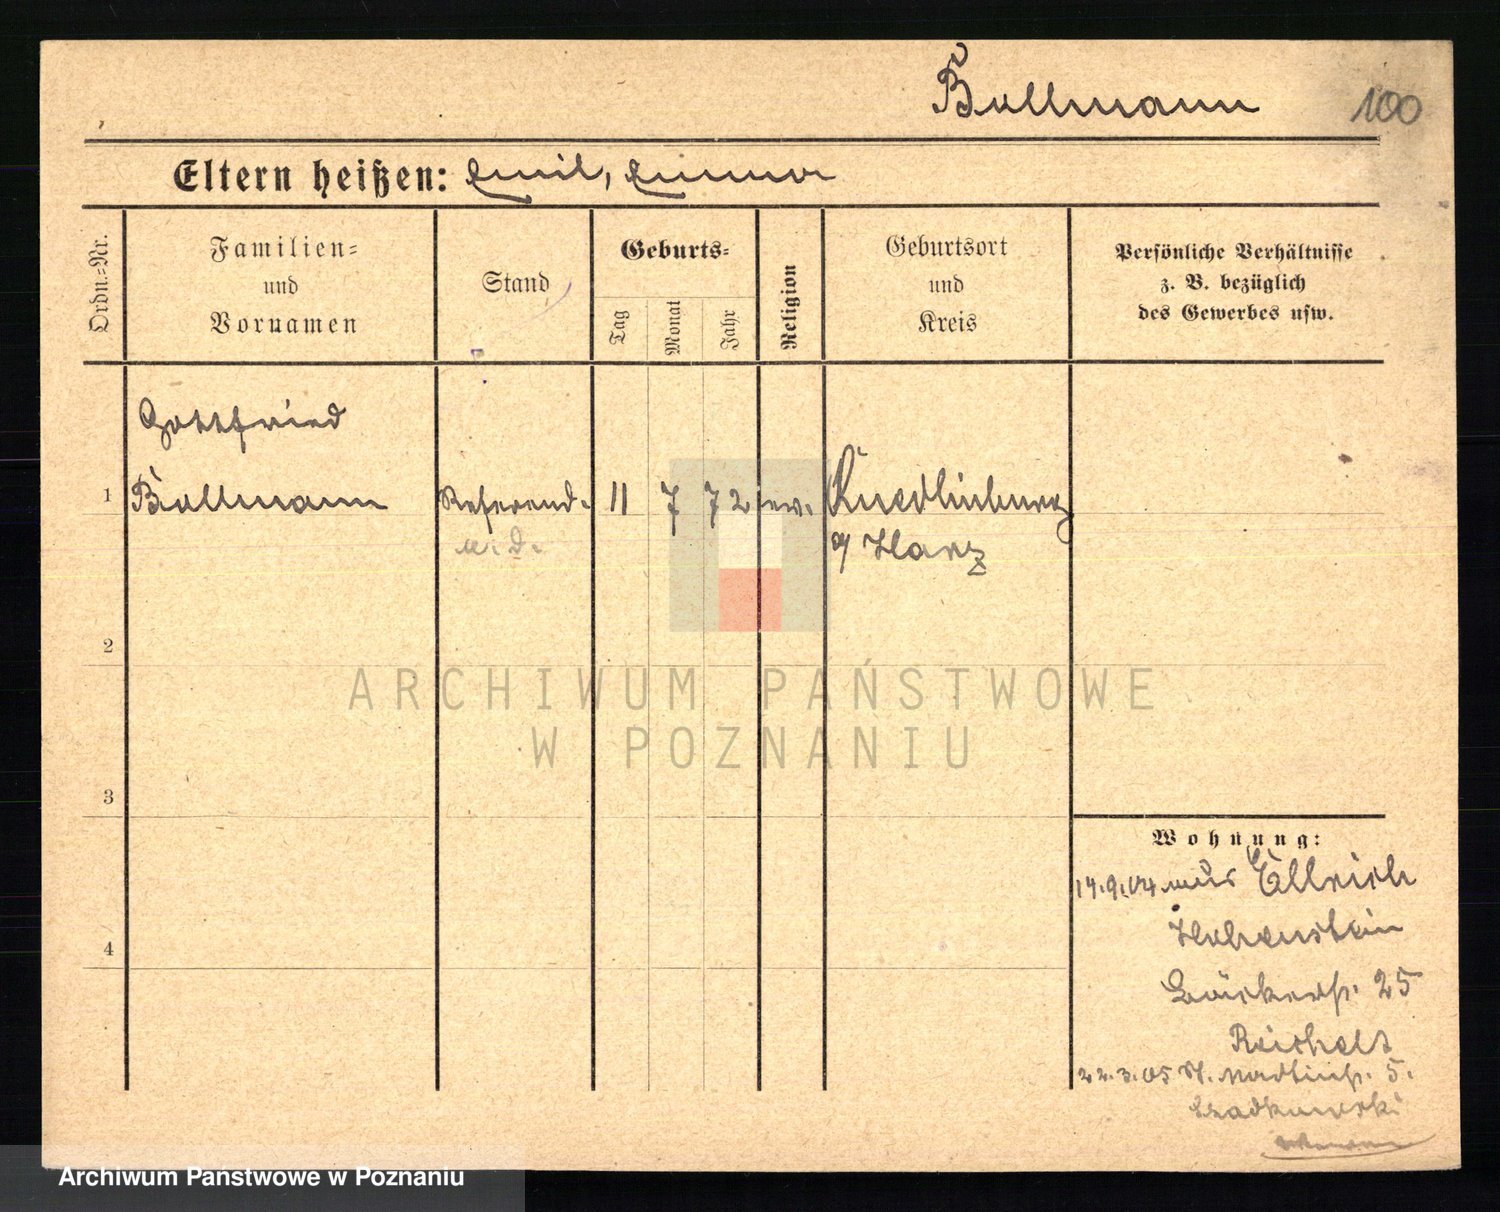 Bollmann 100
Eltern heißen: Emil, Emma
Ordn.-Nr.
Familien-
und
Vornamen
Stand
Geburts-
Tag
Monat
Jahr
Religion
Geburtsort
und
Kreis
Persönliche Verhältnisse
z. B. bezüglich
des Gewerbes usw.
Gottfried
1 Bollmann Referend. 11 7 72 ev. Quedlinburg
a/ Harz
2
3
4
Wohnung:
14.9.04 aus Ellrich
Hohenstein
Bäckerstr. 25
Reichelt
22.3.05 St. Martinstr. 5.
ARCHIWUM PAŃSTWOWE
W POZNANIU
Archiwum Państwowe w Poznaniu